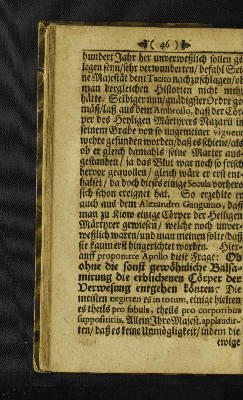 ( 46 )
hundert Jahr her unverweßlich sollen ge-
legen seyn/ sehr verwunderten/ befahl Sei-
ne Majestät dem Tacito nachzuschlagen/ ob
man dergleichen Historien nicht mehr
hätte. Selbiger nun/ gnädigster Ordre ge-
mäß/ laß aus dem Ambrosio, daß der Cör-
per des Heyligen Märtyrers Nazarii in
seinem Grabe von so ungemeiner vigueur
wehre gefunden worden/ daß es schiene/ als
ob er gleich damahls seine Marter aus-
gestanden/ ja das Blut war noch so frisch
hervor gequollen/ gleich wäre er erst ent-
halset/ da doch dieses einige Secula vorhero
sich schon ereignet hat. So erzehlte er
auch aus dem Alexandro Ganguino, daß
man zu Kiow einige Cörper der Heiligen
Märtyrer gewiesen/ welche noch unver-
weßlich wären/ und man meinen solte/ daß
sie kaum erst hingerichtet worden. Hier-
auff proponirte Apollo diese Frage: Ob
ohne die sonst gewöhnliche Balsa-
mirung die erblichenen Cörper der
Verwesung entgehen könten? Die
meisten negirten es in totum, einige hielten
es theils pro fabula, theils pro corporibus
supposititiis. Allein Ihro Majest. applaudir-
ten, daß es keine Unmöglichkeit/ indem die
ewige